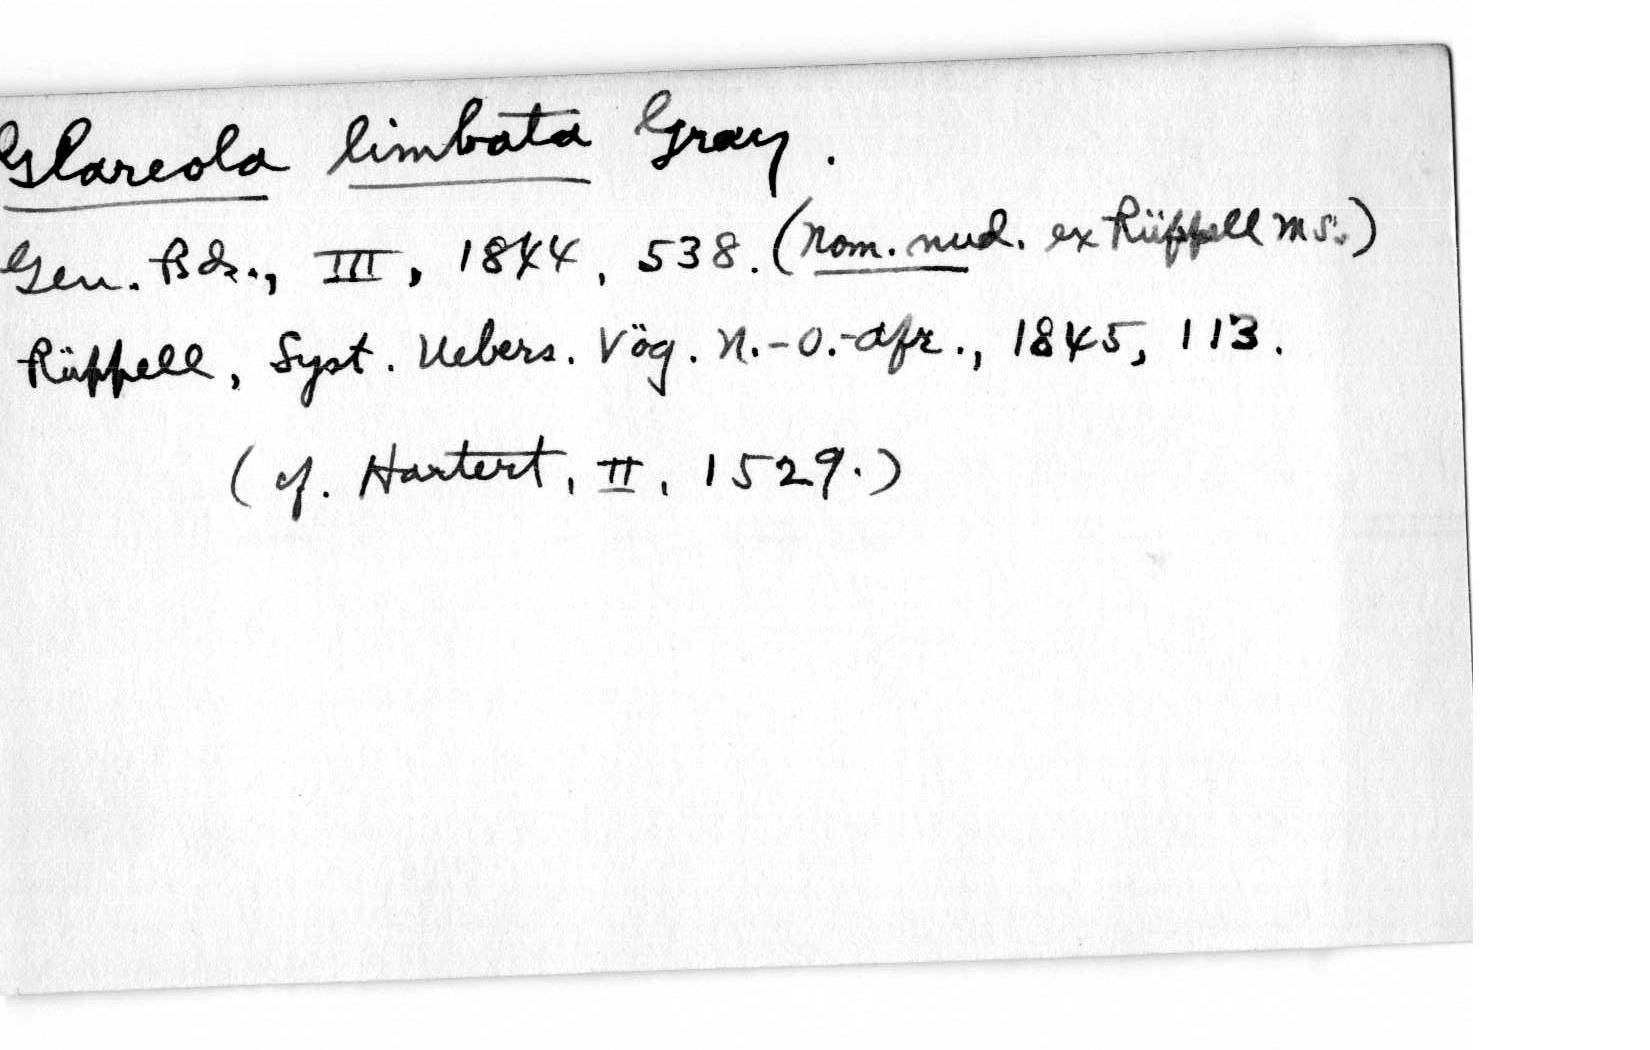 Glareola limbata Gray.
Gen. Bds., III, 1844, 538. (nom. nud. ex Rüppell MS.)
Rüppell, Syst. Uebers. Vög. N.-O.-Afr., 1845, 113.
(cf. Hartert, II, 1529.)